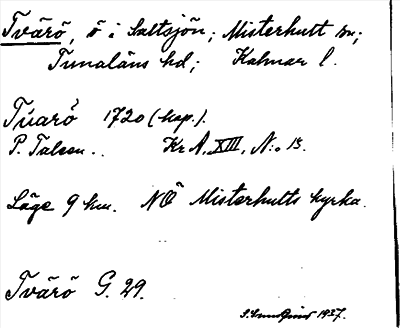 Tvärö, ö i Saltsjön; Misterhult sn;
Tunaläns hd; Kalmar l.
Tuarö 1720 (kop.).
P. Talsen.. Kr A, XIII, N:o 15.
Läge 9 km. NÖ Misterhults kyrka.
Tvärö G. 29.
1937.